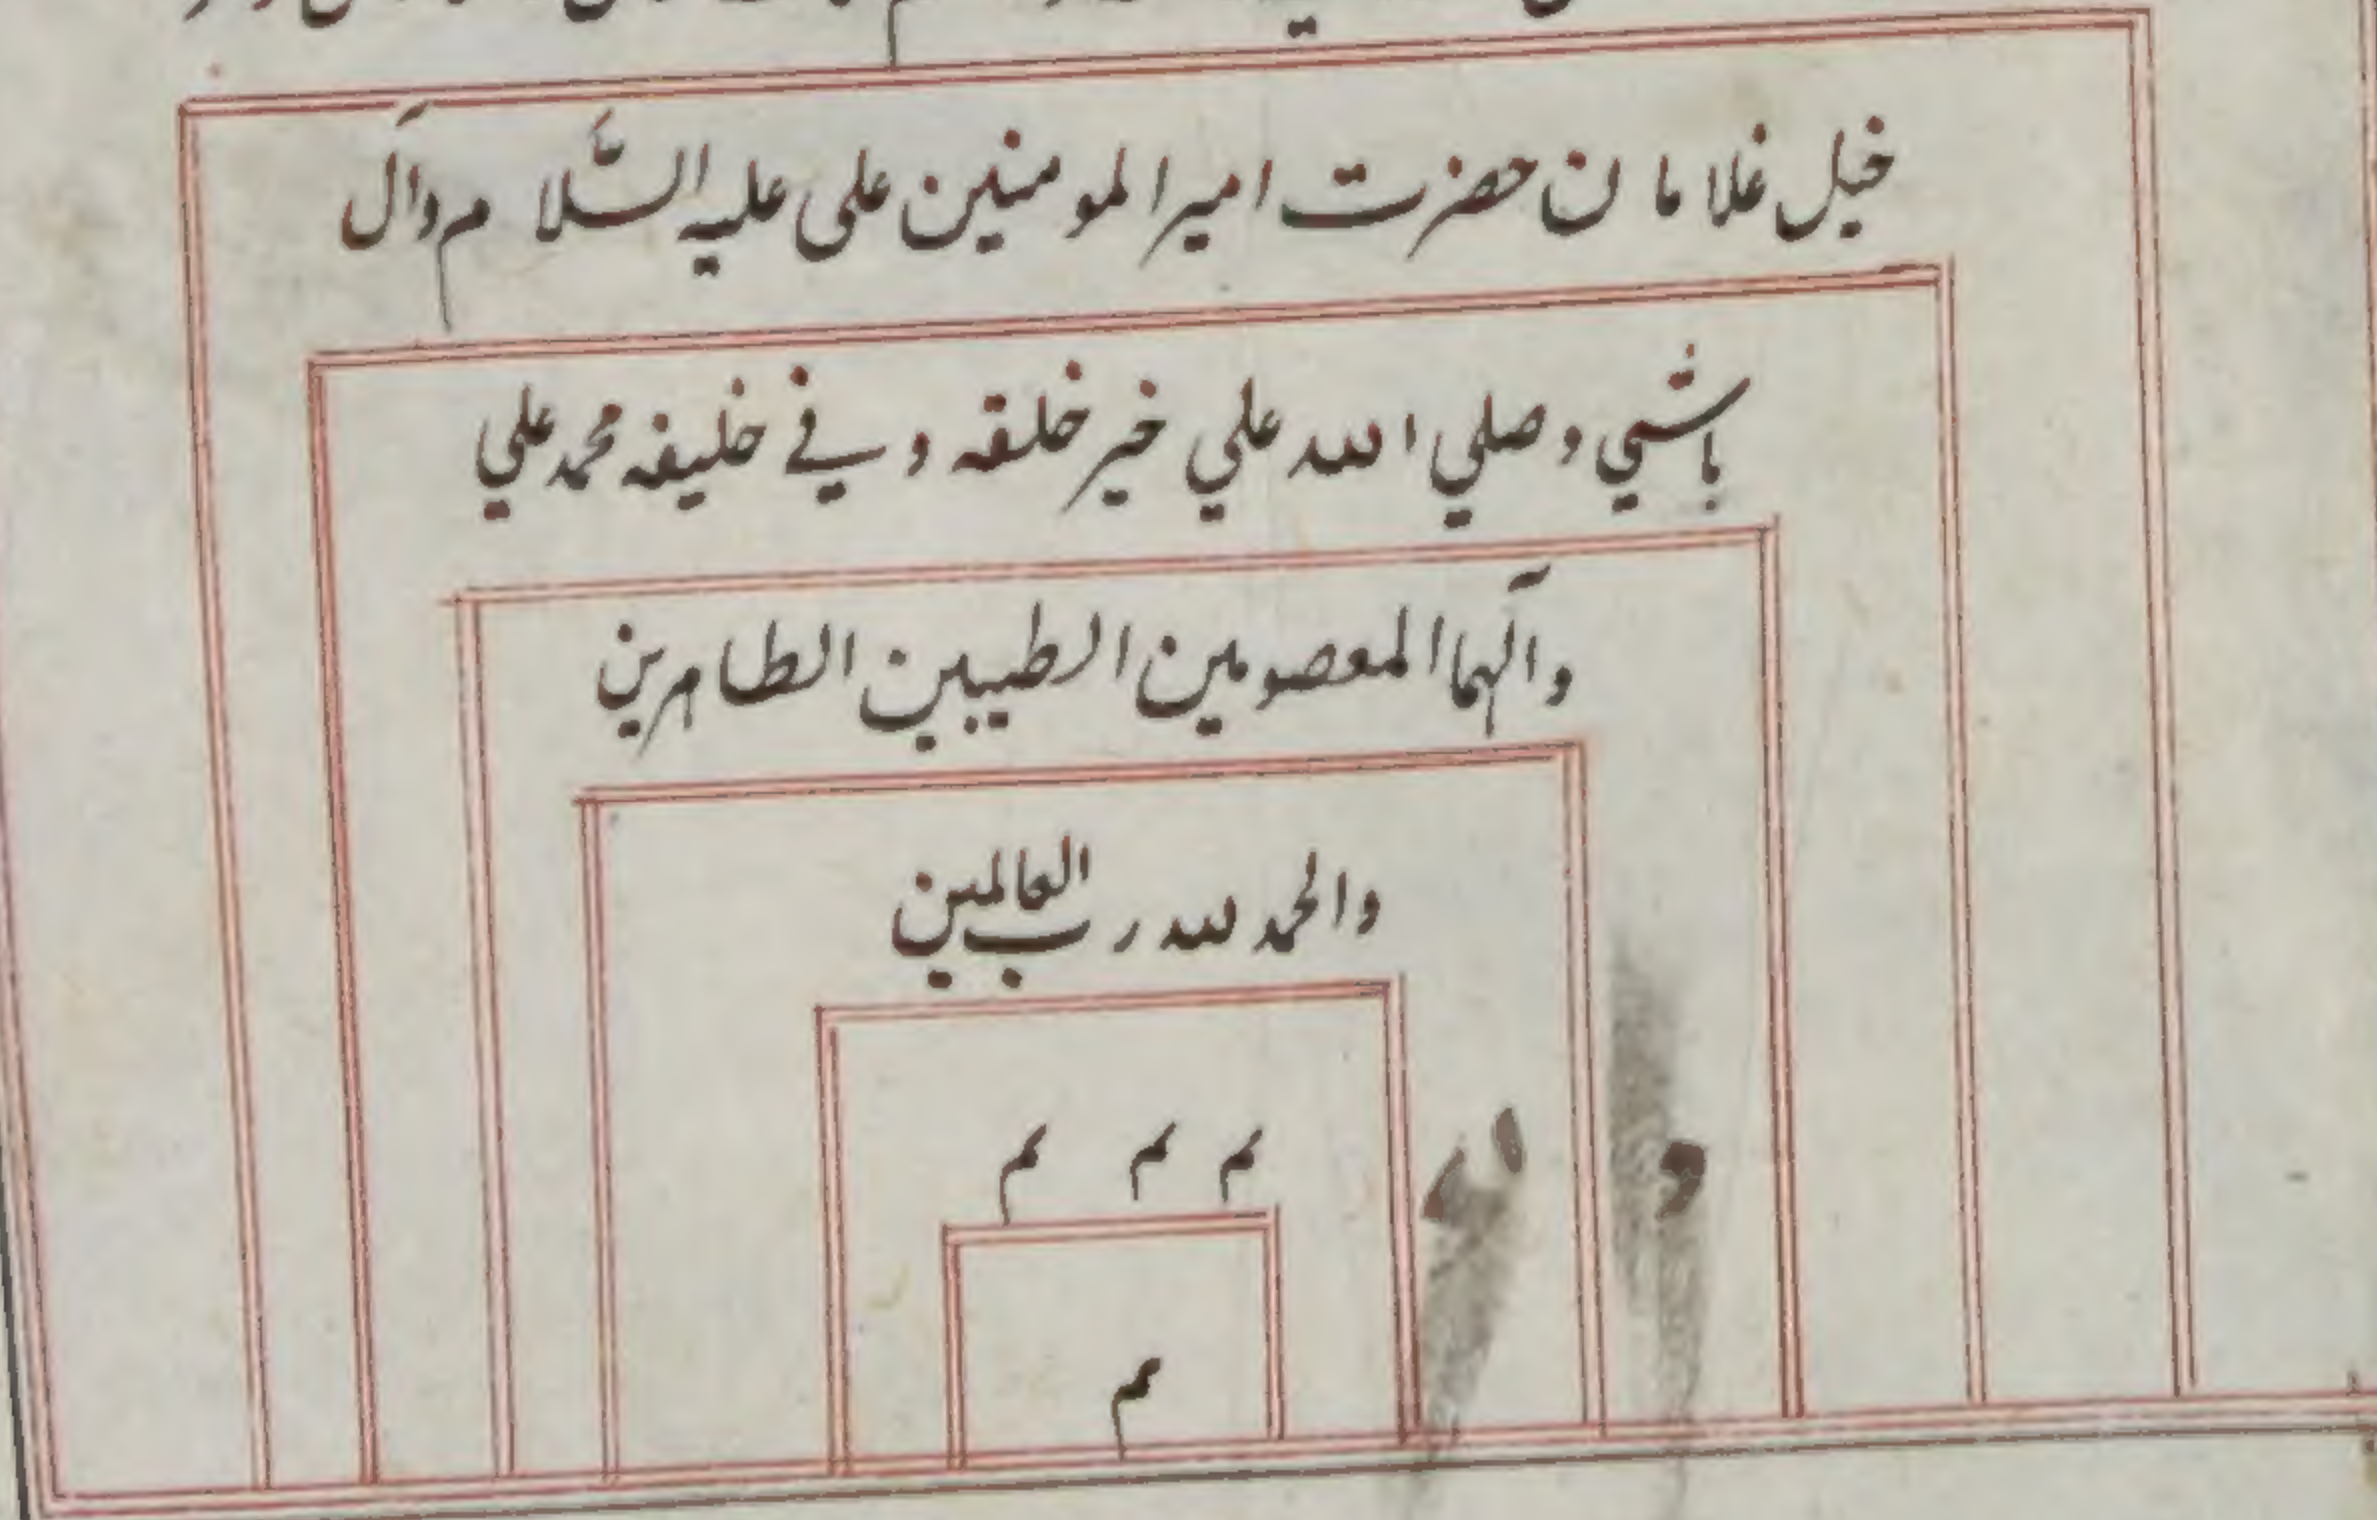 خیل غلامان حضرت امیر المومنین علی علیه السَّلام وآل
باشي وصلي الله علي خير خلقه وفي خليفه محمد علي
وآلهما المعصومين الطيبين الطاهرين
والحمد لله رب العالمين
م م م
م